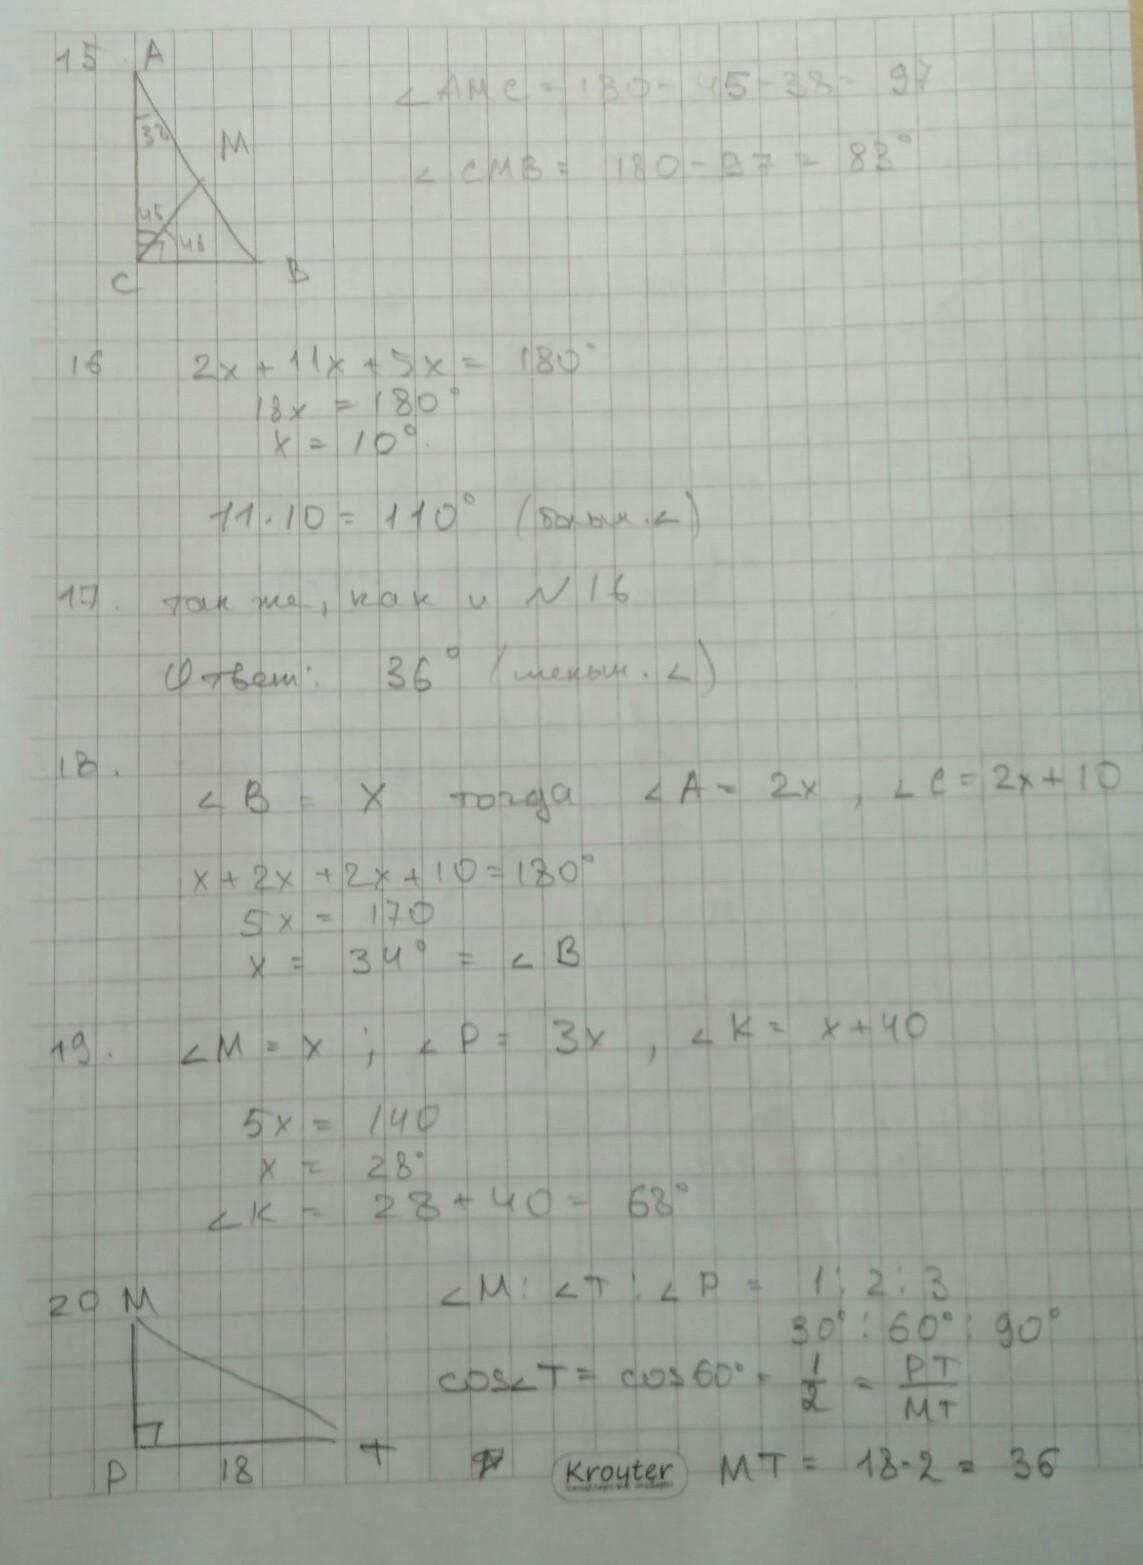 15. A
∠AMC = 180 - 45 - 38 = 97
38
M
∠CMB = 180 - 97 = 83°
45
45
C B
16 2x + 11x + 5x = 180°
18x = 180°
x = 10°.
11·10 = 110° (больш. ∠)
17. так же, как и №16
Ответ: 36° (меньш. ∠)
18.
∠B = x тогда ∠A = 2x, ∠C = 2x + 10
x + 2x + 2x + 10 = 180°
5x = 170
x = 34° = ∠B
19. ∠M = x; ∠P = 3x, ∠K = x + 40
5x = 140
x = 28°
∠K = 28 + 40 = 68°
20 M ∠M : ∠T : ∠P = 1 : 2 : 3
30° : 60° : 90°
cos∠T = cos60° = 1/2 = PT/MT
P 18 T Krouter MT = 18·2 = 36